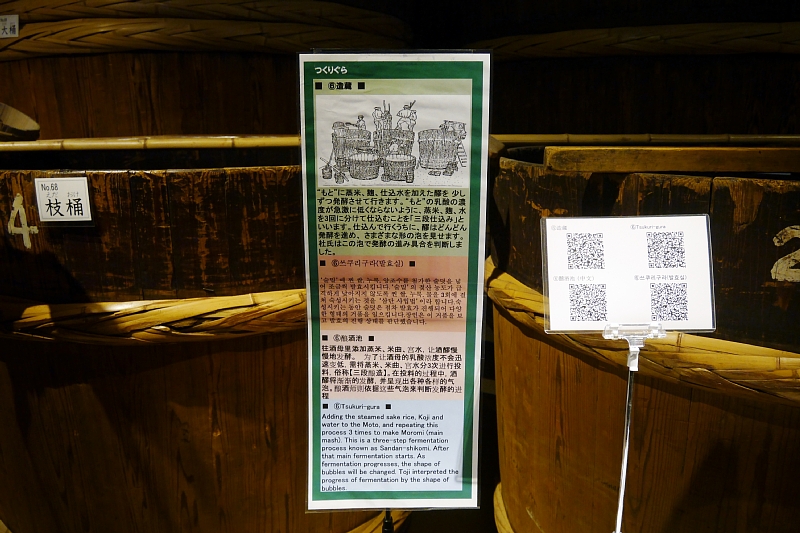 大桶
No.68
えだ おけ
枝桶
つくりぐら
■ ⑥造蔵 ■
"もと"に蒸米、麹、仕込水を加えた醪を 少し
ずつ発酵させて行きます。"もと"の乳酸の濃
度が急激に低くならないように、蒸米、麹、水
を3回に分けて仕込むことを「三段仕込み」と
いいます。仕込んで行くうちに、醪はどんどん
発酵を進め、さまざまな形の泡を見せます。
杜氏はこの泡で発酵の進み具合を判断しまし
た。
■ ⑥쓰쿠리구라(발효실) ■
■ ⑥酿酒池 ■
往酒母里添加蒸米、米曲、宫水，让酒醪慢
慢地发酵。 为了让酒母的乳酸浓度不会迅
速变低，需将蒸米、米曲、宫水分3次进行投
料，俗称【三段酿造】。在投料的过程中，酒
醪将渐渐的发酵，并呈现出各种各样的气
泡。酿酒师则依据这些气泡来判断发酵的进
程
■ ⑥Tsukuri-gura ■
Adding the steamed sake rice, Koji and
water to the Moto, and repeating this
process 3 times to make Moromi (main
mash). This is a three-step fermentation
process known as Sandan-shikomi. After
that main fermentation starts. As
fermentation progresses, the shape of
bubbles will be changed. Toji interpreted the
progress of fermentation by the shape of
bubbles.
⑥造蔵
⑥Tsukuri-gura
⑥쓰쿠리구라(발효실)